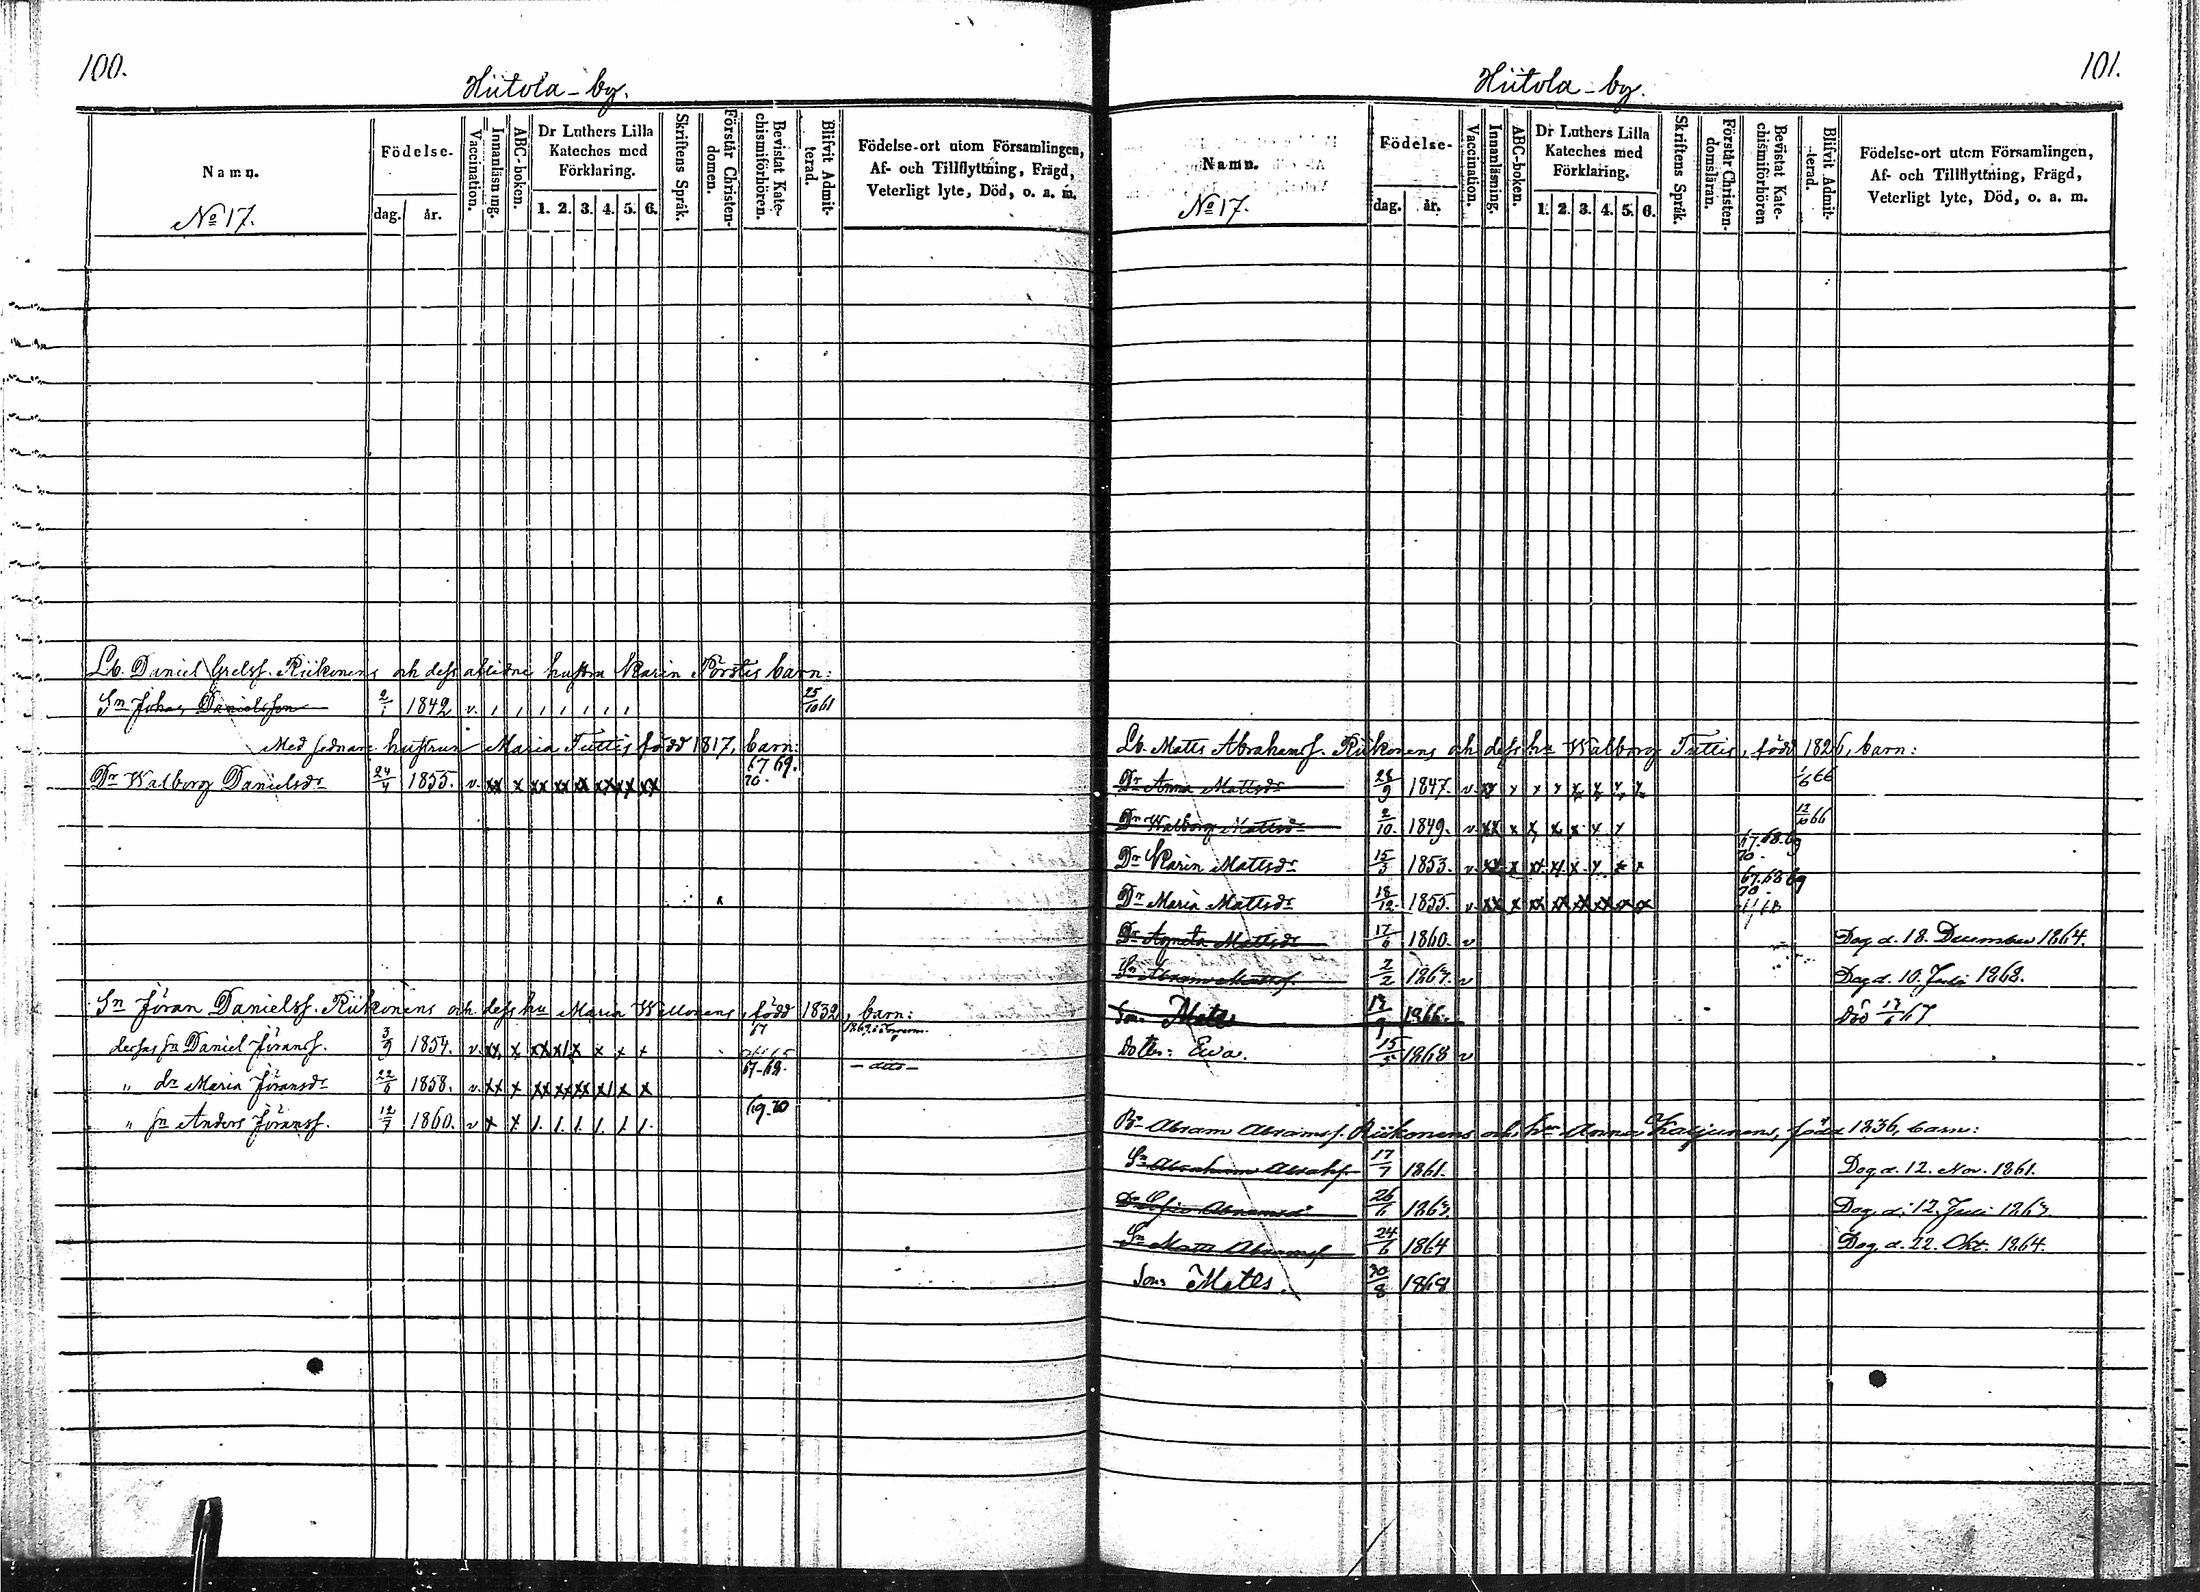 100.
Hiitola-by.
Namn.
No 17.
Födelse-
dag.
år.
Vaccination.
Innanläsning.
ABC-boken.
Dr Luthers Lilla
Kateches med
Förklaring.
1. 2. 3. 4. 5. 6.
Skriftens Språk.
Förstår Christen-
domen.
Bevistat Kate-
chismiförhören.
Blifvit Admit-
terad.
Födelse-ort utom Församlingen,
Af- och Tillflyttning, Frägd,
Veterligt lyte, Död, o. a. m.
Lb. Daniel Grelsf. Riikonens och dess aflidne hustru Karin Törstis barn:
Sn Johan Danielsson 2/1 1842 v. 25/10 61
Med sednare hustrun Maria Tuttis född 1817, barn:
67 69.
Dr Walborg Danielsdr 24/4 1855. v. xx x xx xx xx xx xx xx 70.
Sn Jöran Danielsf. Riikonens och dess hu Maria Wellonens, född 1832, barn:
67
dessas sn Daniel Jöransf. 3/9 1854. v. xx x xx x x x x x
67-69. - dito -
" dr Maria Jöransdr 22/6 1858. v. xx x xx xx xx x x x
69.70
" sn Anders Jöransf. 12/7 1860. v x x 1. 1. 1. 1. 1. 1.
101.
Hiitola-by.
Namn.
No 17.
Födelse-
dag.
år.
Vaccination.
Innanläsning.
ABC-boken.
Dr Luthers Lilla
Kateches med
Förklaring.
1. 2. 3. 4. 5. 6.
Skriftens Språk.
Förstår Christen-
domsläran.
Bevistat Kate-
chismiförhören
Blifvit Admit-
terad.
Födelse-ort utom Församlingen,
Af- och Tillflyttning, Frägd,
Veterligt lyte, Död, o. a. m.
Lb. Matts Abrahamsf. Riikonens och dess hu Walborg Tuttis, född 1826, barn:
Dr Anna Mattsdr 28/9 1847. v. 1/6 66
Dr Walborg Mattsdr 2/10. 1849. v xx x x x x x x 12/10 66
67.68.69
Dr Karin Mattsdr 15/3 1853. v. 70.
67.68 69
Dr Maria Mattsdr 18/12 1855. v. xx x xx xx xx xx x x 70.
Dr Agneta Mattsdr 17/6 1860. v Dog d. 18. December 1864.
Sn Abram Mattsf. 7/2 1863. v Dog d. 10. Juli 1868.
Son Matts 17/9 1866. död 17/6 67.
Dotter: Ewa. 15/5 1868 v
Br Abram Abramsf. Riikonens och hu Anna Karjunens, född 1836, barn:
Sn Abraham Abrahsf. 17/7 1861. Dog d. 12. Nov. 1861.
Dr Sofia Abramsdr 26/6 1863. Dog d. 12. Juli 1863.
Sn Matts Abramsf. 24/6 1864 Dog d. 22. Okt. 1864.
Son: Matts. 30/8 1868